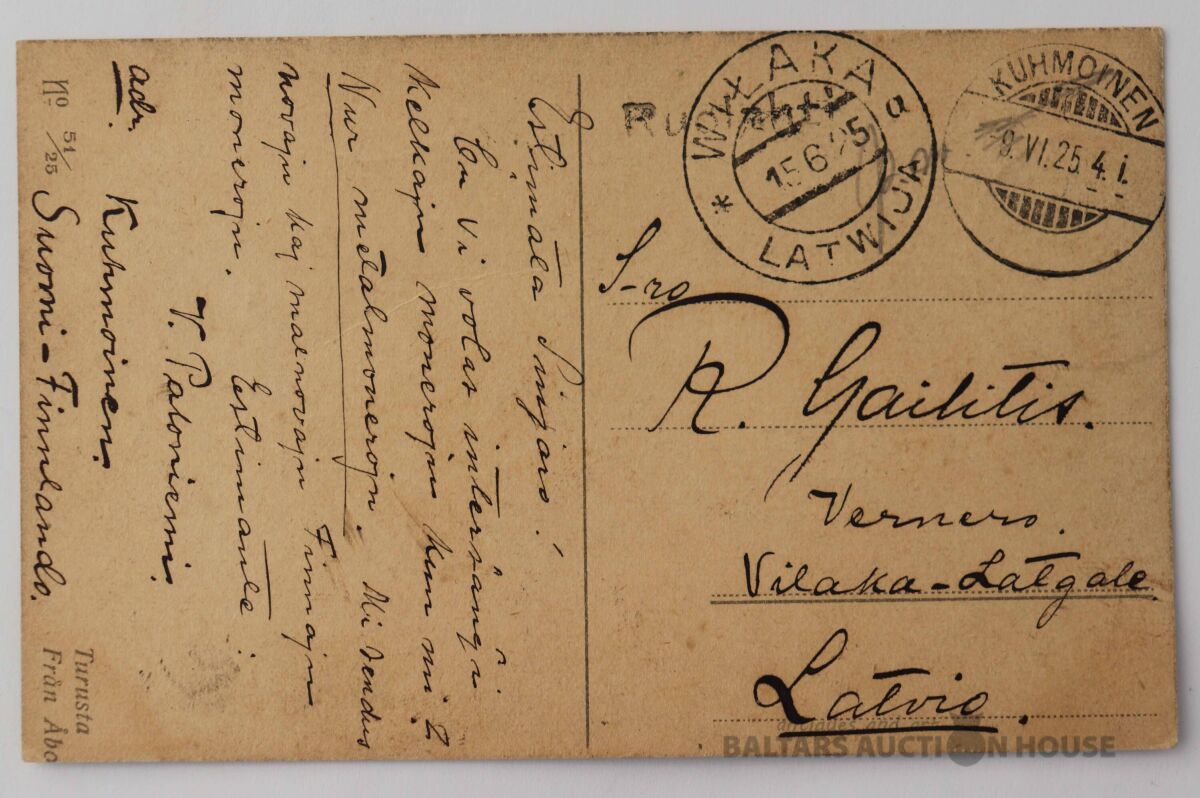 Estimata Sinjoro!
Ĉu vi volas interŝanĝi
kelkajn monerojn kun mi?
Nur metalmonerojn. Mi sendus
novajn kaj malnovajn Finnajn
monerojn. Estimante:
V. Paloniemi
adr. Kuhmoinen,
Suomi-Finnlando.
No 51/25
Turusta
Från Åbo
WIĻAKA a
15.6.25
* LATWIJA
KUHMOINEN
9.VI.25.4.i.
S-ro
R. Gailitis.
Vernero.
Vilaka-Latgale
Latvio.
antiques and art
BALTARS AUCTION HOUSE